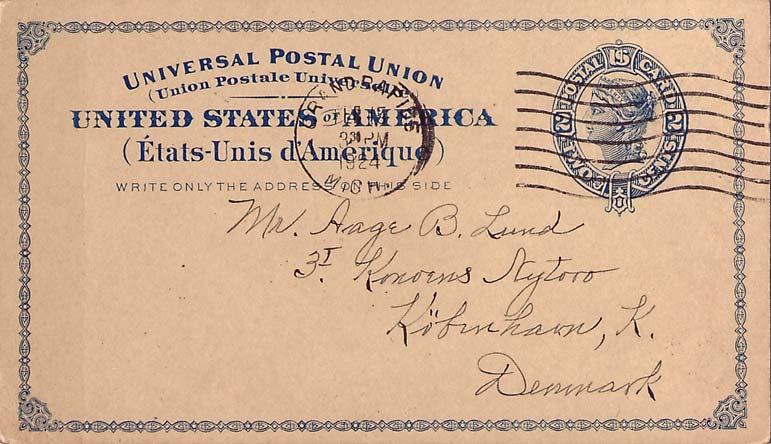 UNIVERSAL POSTAL UNION
(Union Postale Universelle)
UNITED STATES OF AMERICA
(États-Unis d'Amérique)
WRITE ONLY THE ADDRESS ON THIS SIDE
GRAND RAPIDS
PM
1924
MICH.
POSTAL CARD
U S
2 2
CENTS
Mr. Aage B. Lund
3I Konvens Nytorv
Köbenhavn, K.
Denmark